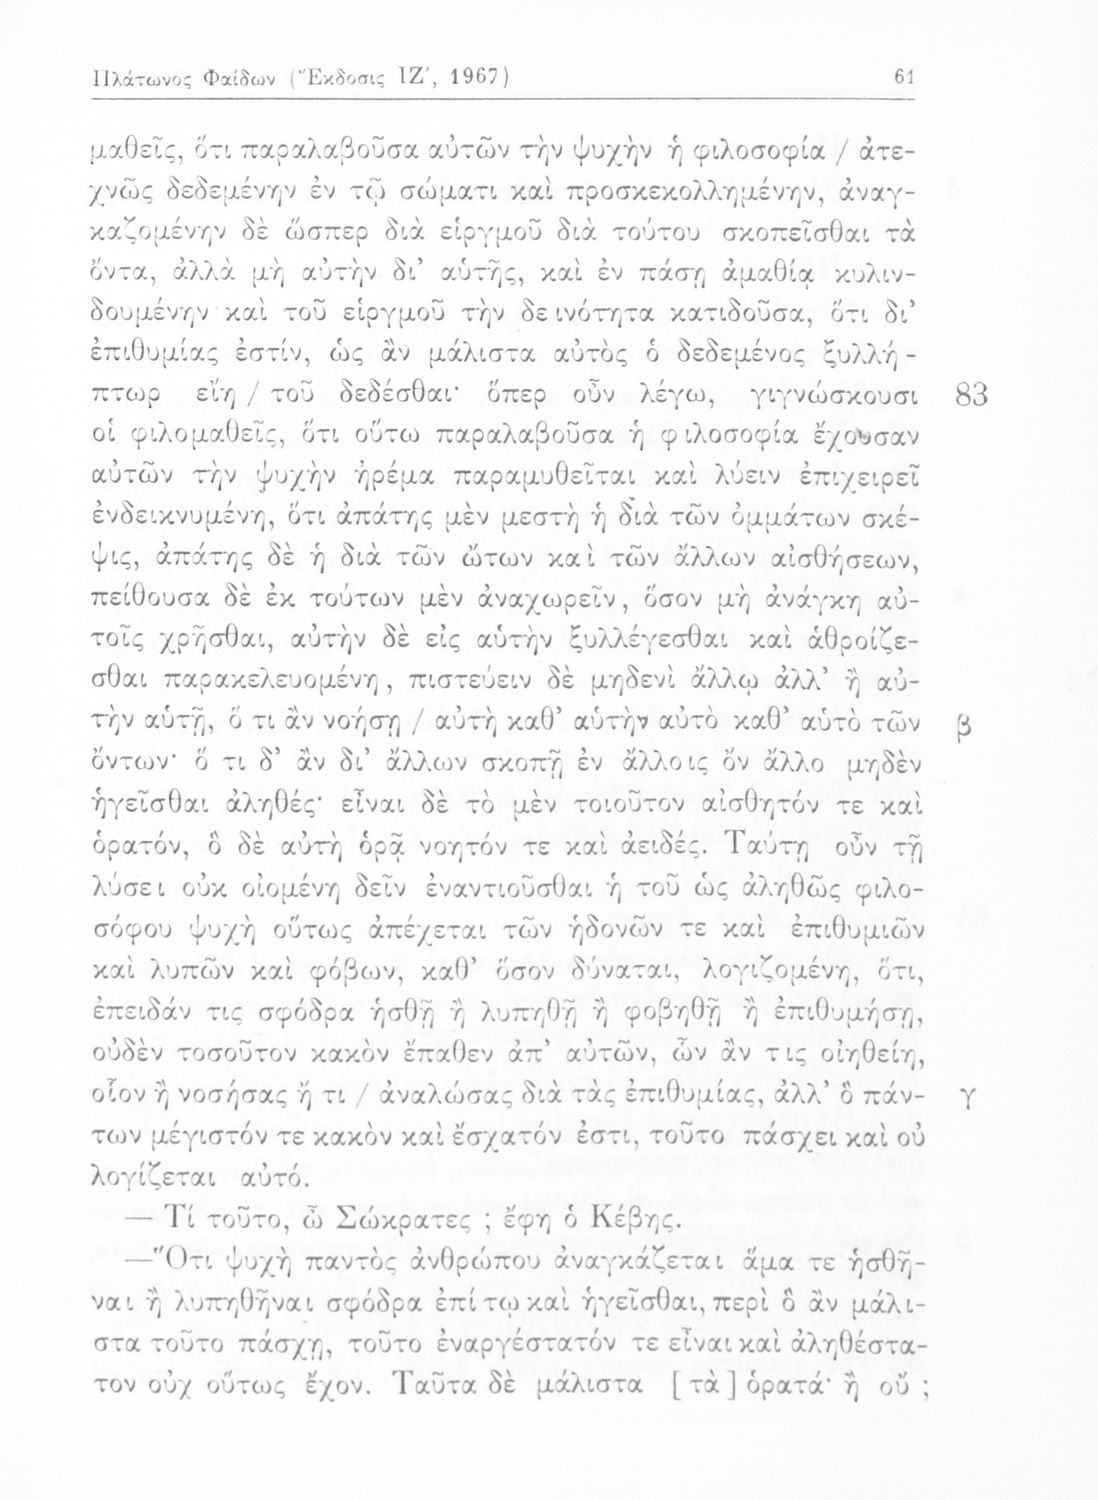 Πλάτωνος Φαίδων (Ἔκδοσις ΙΖ΄, 1967) 61
μαθεῖς, ὅτι παραλαβοῦσα αὐτῶν τὴν ψυχὴν ἡ φιλοσοφία / ἀτε-
χνῶς δεδεμένην ἐν τῷ σώματι καὶ προσκεκολλημένην, ἀναγ-
καζομένην δὲ ὥσπερ διὰ εἱργμοῦ διὰ τούτου σκοπεῖσθαι τὰ
ὄντα, ἀλλὰ μὴ αὐτὴν δι’ αὑτῆς, καὶ ἐν πάσῃ ἀμαθίᾳ κυλιν-
δουμένην καὶ τοῦ εἱργμοῦ τὴν δεινότητα κατιδοῦσα, ὅτι δι’
ἐπιθυμίας ἐστίν, ὡς ἂν μάλιστα αὐτὸς ὁ δεδεμένος ξυλλή-
πτωρ εἴη / τοῦ δεδέσθαι· ὅπερ οὖν λέγω, γιγνώσκουσι 83
οἱ φιλομαθεῖς, ὅτι οὕτω παραλαβοῦσα ἡ φιλοσοφία ἔχουσαν
αὐτῶν τὴν ψυχὴν ἠρέμα παραμυθεῖται καὶ λύειν ἐπιχειρεῖ
ἐνδεικνυμένη, ὅτι ἀπάτης μὲν μεστὴ ἡ διὰ τῶν ὀμμάτων σκέ-
ψις, ἀπάτης δὲ ἡ διὰ τῶν ὤτων καὶ τῶν ἄλλων αἰσθήσεων,
πείθουσα δὲ ἐκ τούτων μὲν ἀναχωρεῖν, ὅσον μὴ ἀνάγκη αὐ-
τοῖς χρῆσθαι, αὐτὴν δὲ εἰς αὑτὴν ξυλλέγεσθαι καὶ ἁθροίζε-
σθαι παρακελευομένη, πιστεύειν δὲ μηδενὶ ἄλλῳ ἀλλ’ ἢ αὐ-
τὴν αὑτῇ, ὅ τι ἂν νοήσῃ / αὐτὴ καθ’ αὑτὴν αὐτὸ καθ’ αὑτὸ τῶν β
ὄντων· ὅ τι δ’ ἂν δι’ ἄλλων σκοπῇ ἐν ἄλλοις ὂν ἄλλο μηδὲν
ἡγεῖσθαι ἀληθές· εἶναι δὲ τὸ μὲν τοιοῦτον αἰσθητόν τε καὶ
ὁρατόν, ὃ δὲ αὐτὴ ὁρᾷ νοητόν τε καὶ ἀειδές. Ταύτῃ οὖν τῇ
λύσει οὐκ οἰομένη δεῖν ἐναντιοῦσθαι ἡ τοῦ ὡς ἀληθῶς φιλο-
σόφου ψυχὴ οὕτως ἀπέχεται τῶν ἡδονῶν τε καὶ ἐπιθυμιῶν
καὶ λυπῶν καὶ φόβων, καθ’ ὅσον δύναται, λογιζομένη, ὅτι,
ἐπειδάν τις σφόδρα ἡσθῇ ἢ λυπηθῇ ἢ φοβηθῇ ἢ ἐπιθυμήσῃ,
οὐδὲν τοσοῦτον κακὸν ἔπαθεν ἀπ’ αὐτῶν, ὧν ἄν τις οἰηθείη,
οἷον ἢ νοσήσας ἤ τι / ἀναλώσας διὰ τὰς ἐπιθυμίας, ἀλλ’ ὃ πάν- γ
των μέγιστόν τε κακὸν καὶ ἔσχατόν ἐστι, τοῦτο πάσχει καὶ οὐ
λογίζεται αὐτό.
— Τί τοῦτο, ὦ Σώκρατες ; ἔφη ὁ Κέβης.
—Ὅτι ψυχὴ παντὸς ἀνθρώπου ἀναγκάζεται ἅμα τε ἡσθῆ-
ναι ἢ λυπηθῆναι σφόδρα ἐπί τῳ καὶ ἡγεῖσθαι, περὶ ὃ ἂν μάλι-
στα τοῦτο πάσχῃ, τοῦτο ἐναργέστατόν τε εἶναι καὶ ἀληθέστα-
τον οὐχ οὕτως ἔχον. Ταῦτα δὲ μάλιστα [τὰ] ὁρατά· ἢ οὔ ;